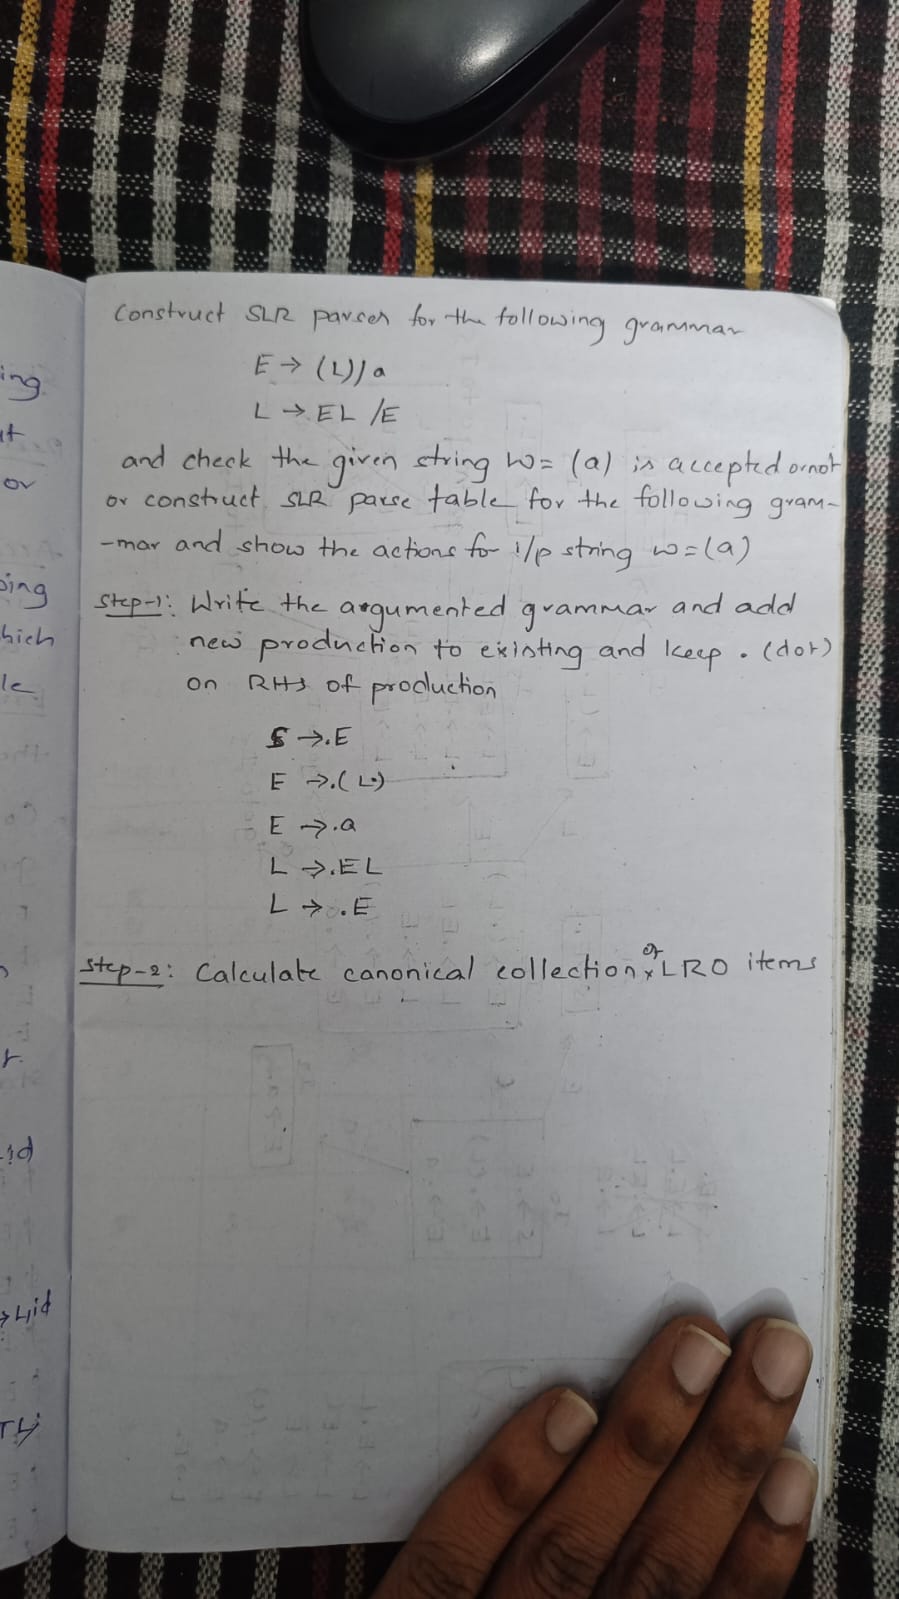 ing
ut
or
ping
hich
le
r.
id
→Lid
Construct SLR parser for the following grammar
E → (L)/a
L → EL /E
and check the given string w= (a) is accepted or not
or construct SLR parse table for the following gram-
-mar and show the actions for i/p string w=(a)
Step-1: Write the argumented grammar and add
new production to existing and keep . (dot)
on RHS of production
S →.E
E →.(L.)
E →.a
L →.EL
L → .E
Step-2: Calculate canonical collection of LR0 items